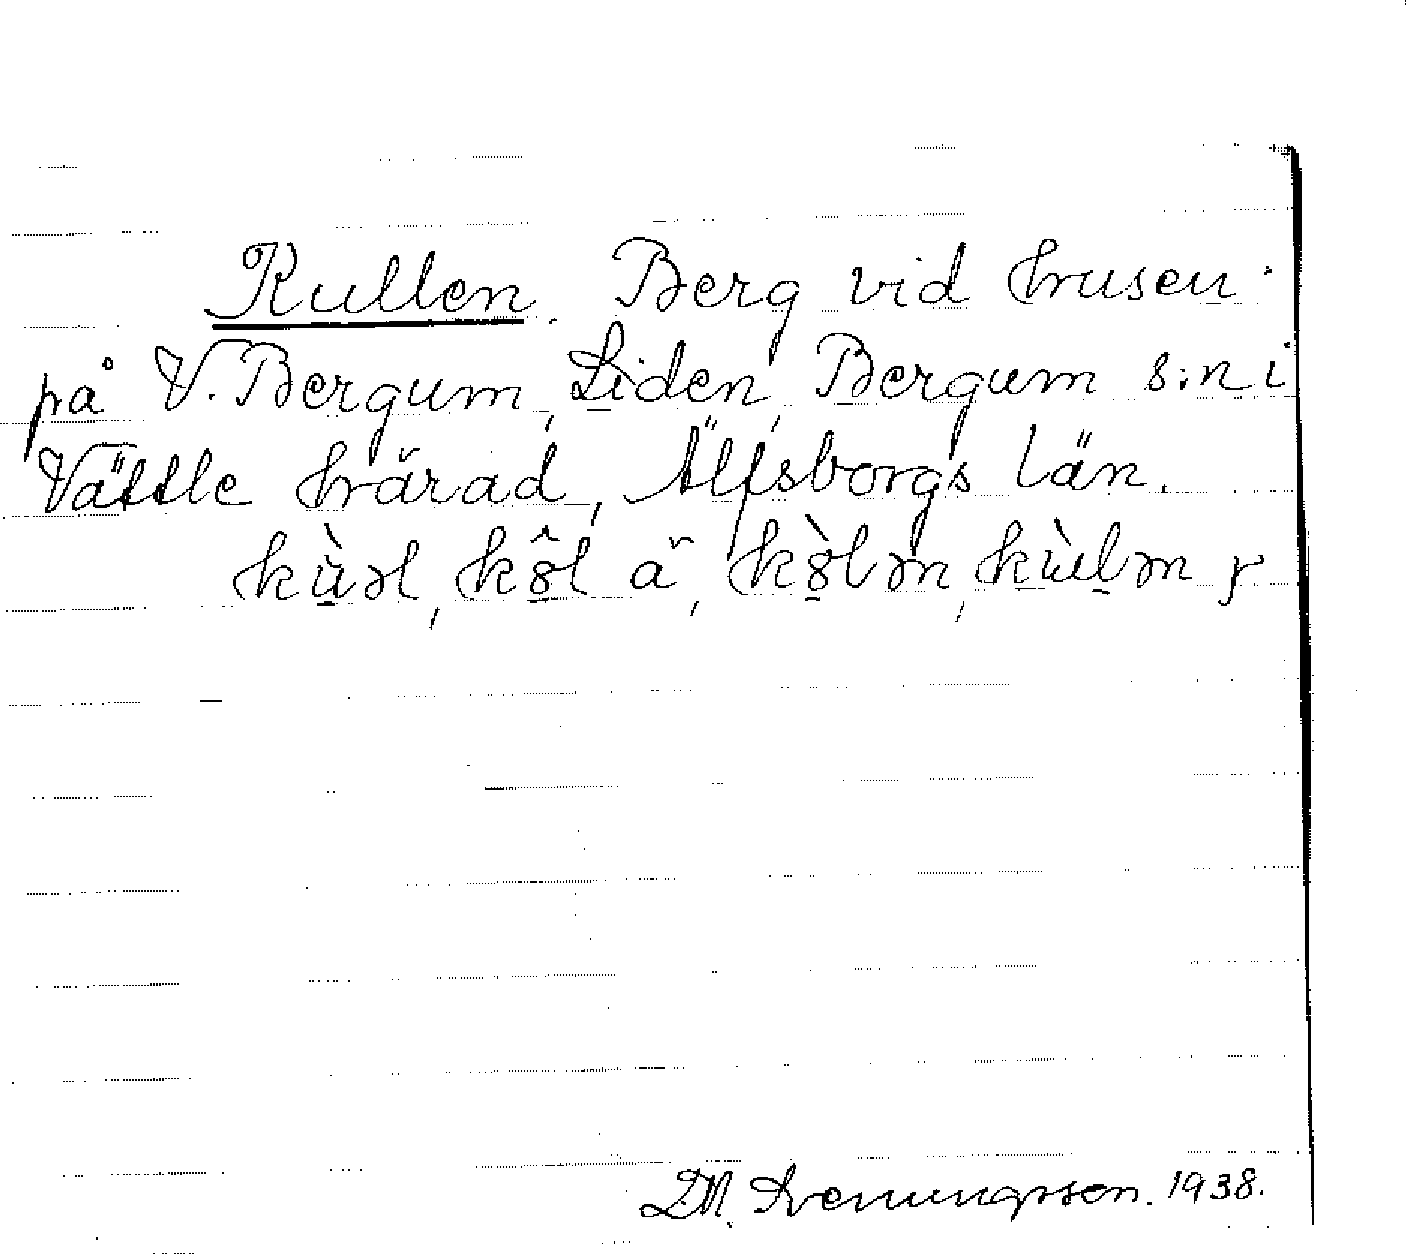 Kullen. Berg vid husen
på V. Bergum, Liden, Bergum s:n i
Vättle härad, Älfsborgs län.
kùəl, kôl a, kòlən, kùlən r
D.N. Svenningsson. 1938.